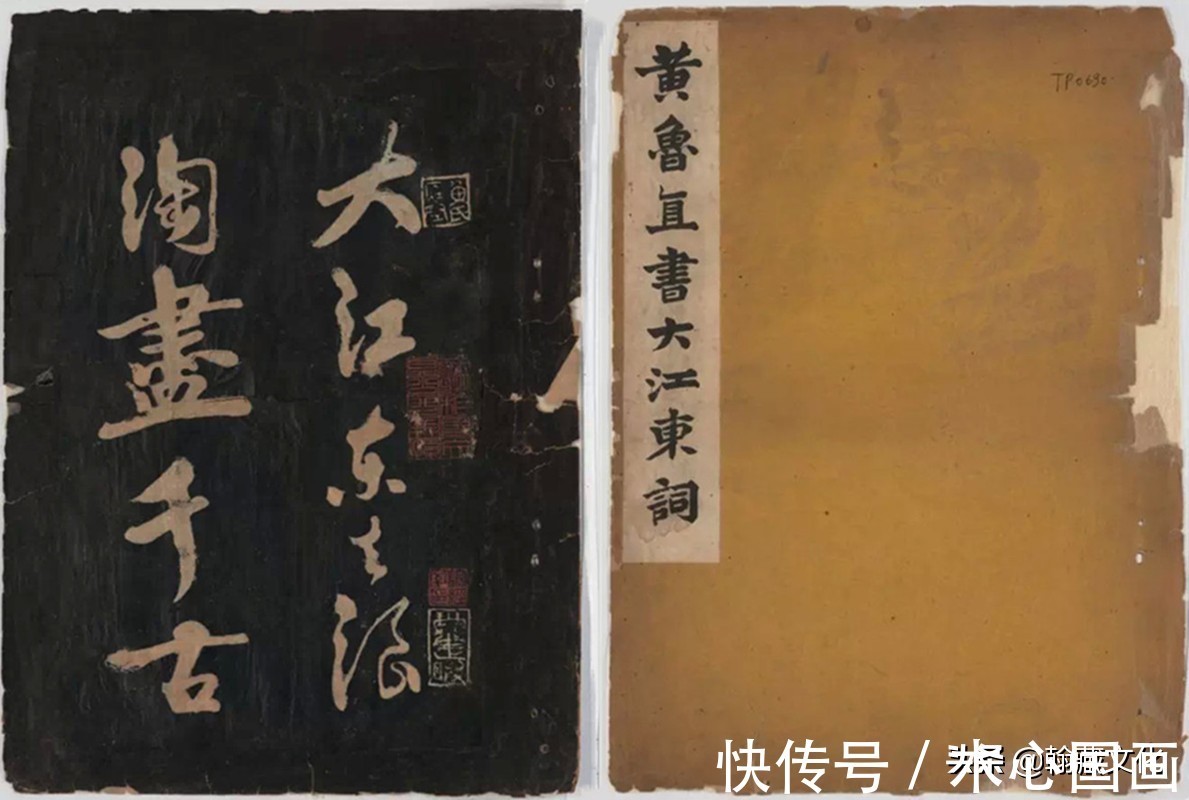 黄魯直書大江東詞
TP0690
大江东去浪
淘盡千古
快传号 /
心国画